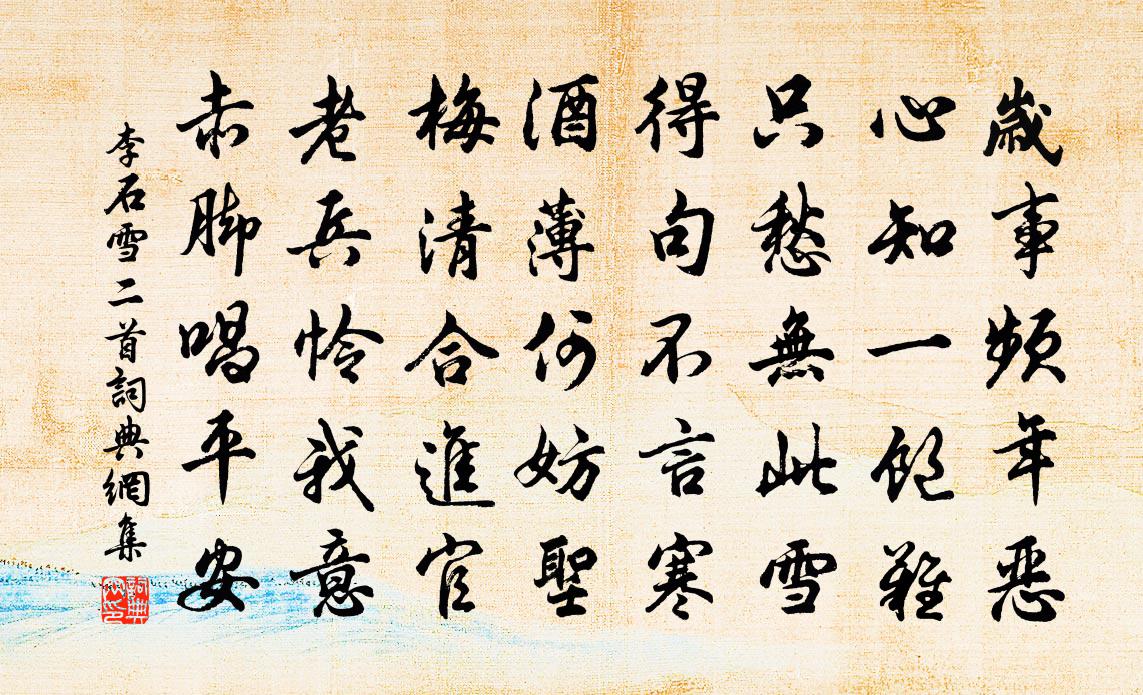 歲事頻年惡
心知一飽難
只愁無此雪
得句不言寒
酒薄何妨聖
梅清合進官
老兵憐我意
赤脚唱平安
李石雪二首詞典網集